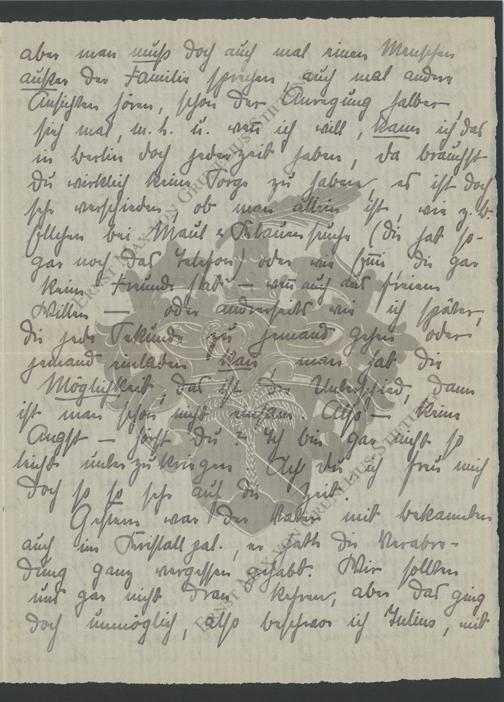 aber man muß doch auch mal einen Menschen
außer der Familie sprechen, auch mal andere
Ansichten hören, schon der Anregung halber,
sieh mal, m. h. u. wenn ich will, kann ich das
in Berlin doch jederzeit haben, da brauchst
Du wirklich keine Sorge zu haben, es ist doch
sehr verschieden, ob man allein ist, wie z. B.
bei Maul & Klauenseuche (die hat so-
gar noch das Telefon) oder wie die gar
keine Freunde hat — wenn auch aus freiem
Willen — oder anderseits wie ich später,
die jede Sekunde zu jemand gehen oder
jemand einladen kann, man hat die
Möglichkeit, das ist der Unterschied, dann
ist man schon nicht einsam. Also — keine
Angst — hörst Du? Ich bin gar nicht so
leicht unterzukriegen. Ach du, ich freu mich
doch so so sehr auf die Zeit.
Gestern war der Vater mit Bekannten
auch im Kristallpal., er hatte die Verabre-
dung ganz vergessen gehabt. Wir sollten
uns gar nicht dran kehren, aber das ging
doch unmöglich, also beschwor ich Julius, mit
ERNST MAX VON GRUNELIUS-STIFTUNG
ERNST MAX VON GRUNELIUS-STIFTUNG